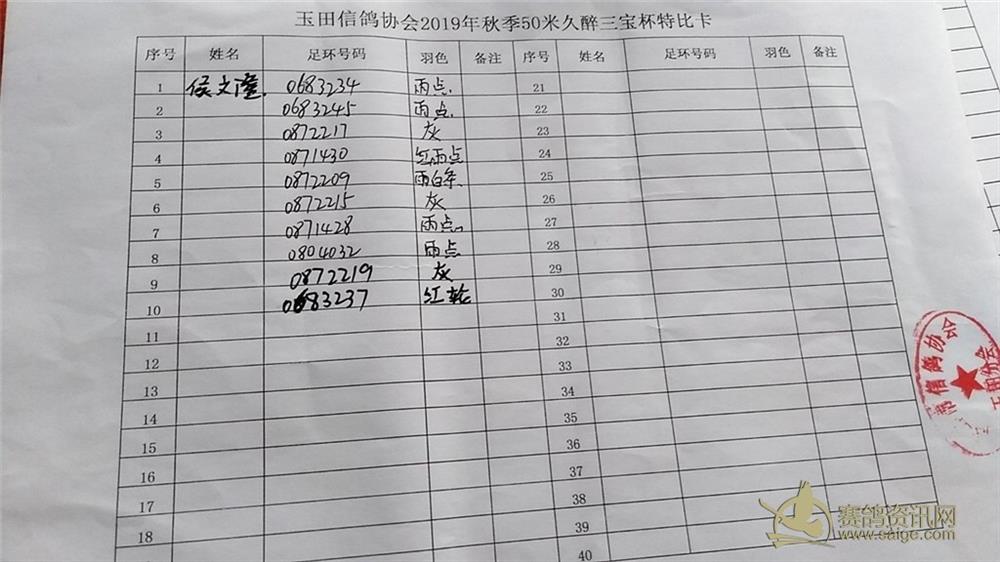 玉田信鸽协会2019年秋季50米久醉三宝杯特比卡
序号 姓名 足环号码 羽色 备注 序号 姓名 足环号码 羽色 备注
1 侯文隆 0683234 雨点 21
2 0683245 雨点 22
3 0872217 灰 23
4 0871430 红雨点 24
5 0872209 雨白条 25
6 0872215 灰 26
7 0871428 雨点 27
8 0804032 雨点 28
9 0872219 灰 29
10 0683237 红轮 30
11 31
12 32
13 33
14 34
15 35
16 36
17 37
18 38
39
40
信鸽协会
玉田分会
赛鸽资讯网
www.saige.com